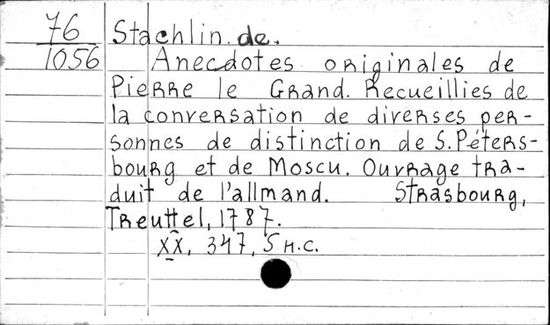 76
1056
Stachlin. de.
Anecdotes originales de
Pierre le Grand. Recueillies de
la conversation de diverses per-
sonnes de distinction de S. Péters-
bourg et de Moscu. Ouvrage tra-
duit de l'allmand. Strasbourg,
Treuttel, 1787.
XX, 347, 5 н.с.